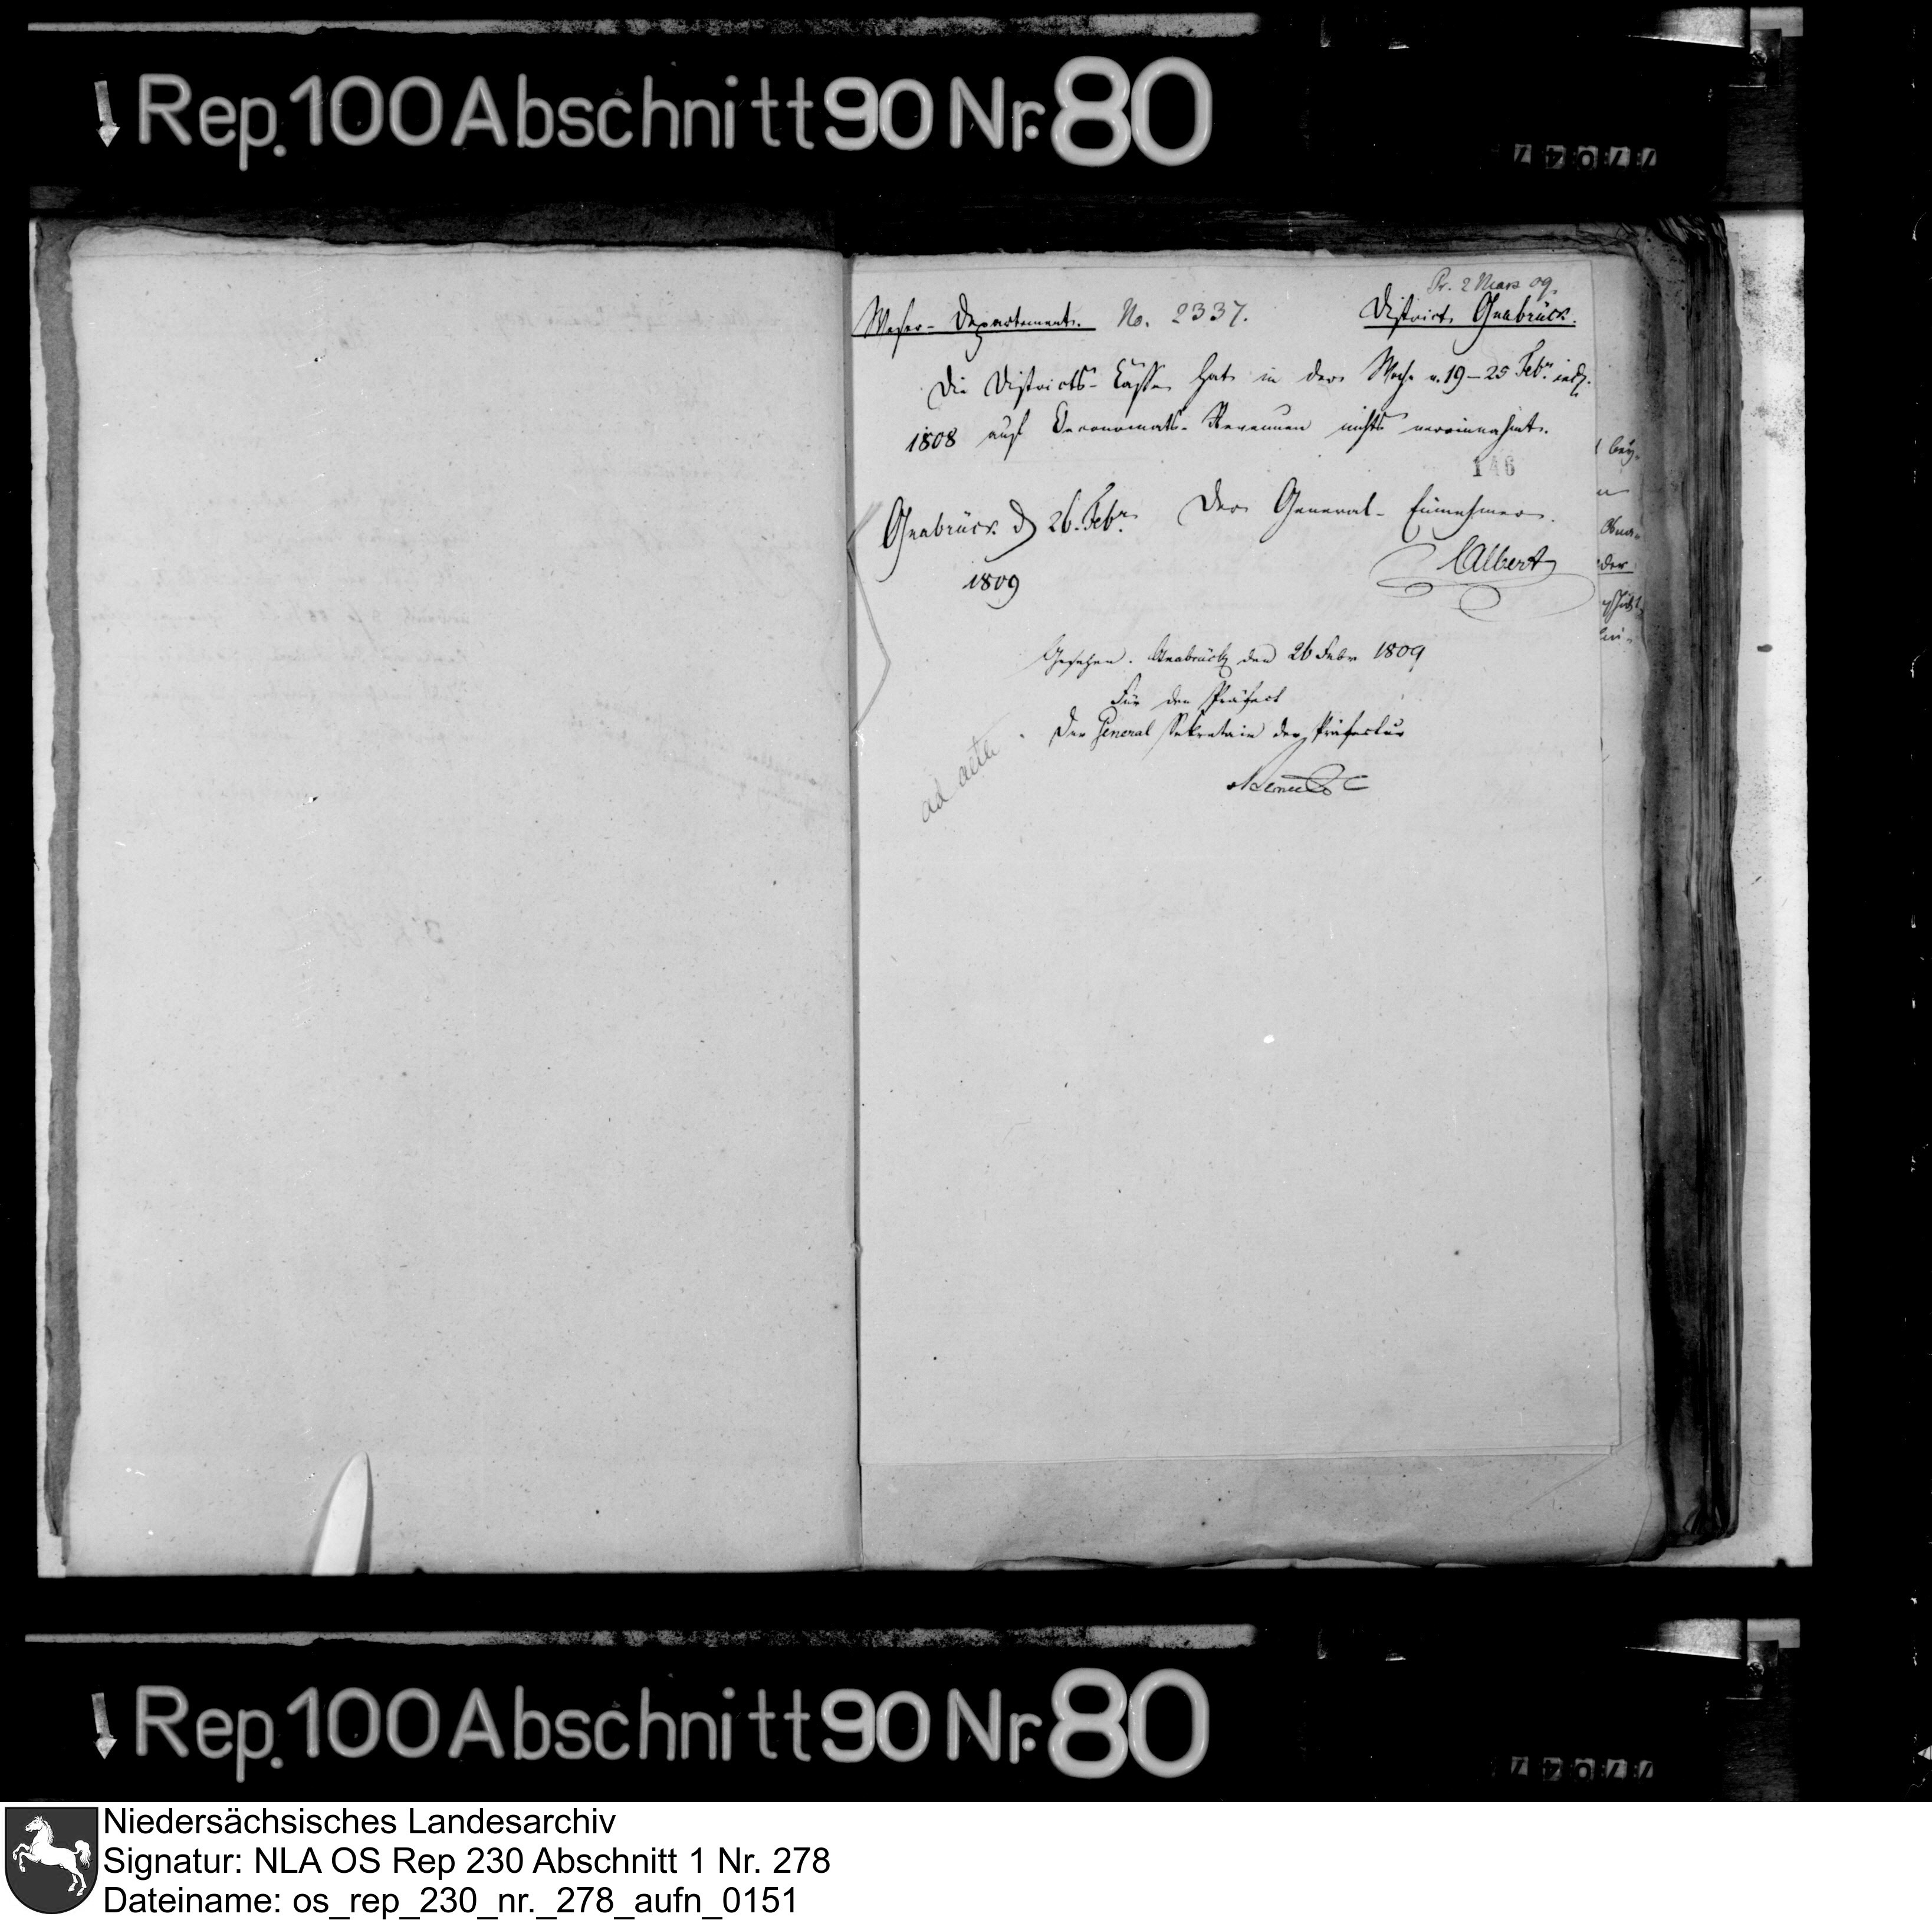 Rep. 100 Abschnitt 90 Nr. 80
Pr. 2 Mars 09.
Weser-Departement. No. 2337. District Osnabrück.
Die Districts-Casse hat in der Woche v. 19–25 Febr. incl.
1808 auf Oeconomats-Revenuen nichts vereinnahmt.
146
Osnabrück d 26. Febr. Der General-Einnehmer.
1809 CAlbert
Gesehen. Osnabrück den 26 Febr 1809
Für den Präfect
Der General Sekretair der Präfectur
ad acta
Rep. 100 Abschnitt 90 Nr. 80
Niedersächsisches Landesarchiv
Signatur: NLA OS Rep 230 Abschnitt 1 Nr. 278
Dateiname: os_rep_230_nr._278_aufn_0151